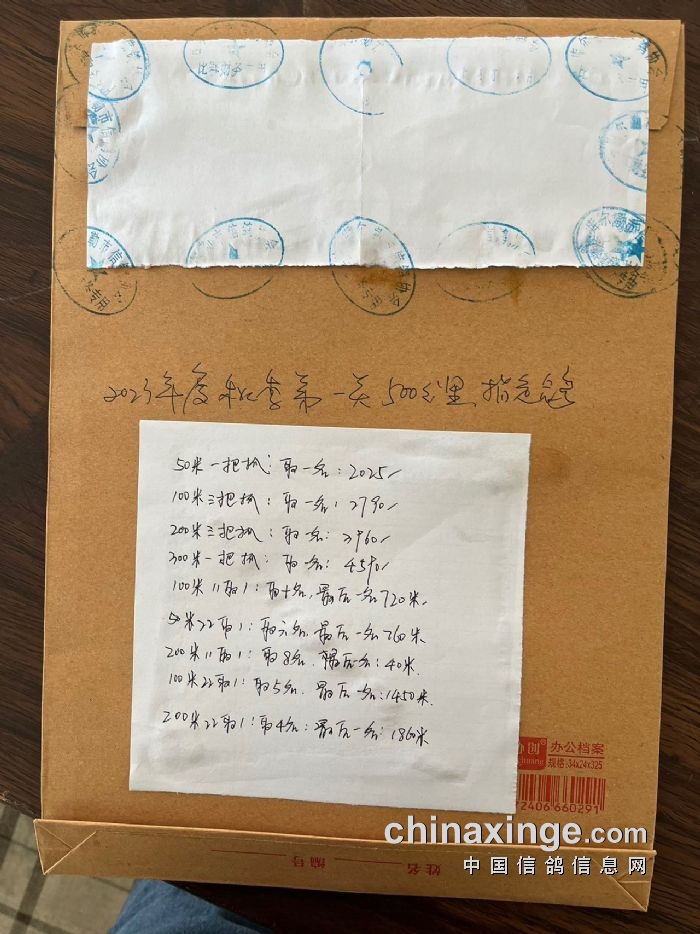 2023年度秋季第一关500公里指定鸽
50米一把抓：取一名：2025/
100米三把抓：取一名：2790/
200米三把抓：取一名：2960/
300米一把抓：取一名：4590/
100米11取1：取十名，最后一名720米.
50米22取1：取六名，最后一名760米
200米11取1：取8名，最后一名：40米.
100米22取1：取5名，最后一名：1450米.
200米22取1：取4名：最后一名：1860米
办公档案
规格:34x24x325
2406 660291
chinaxinge.com
中国信鸽信息网
姓名
编号